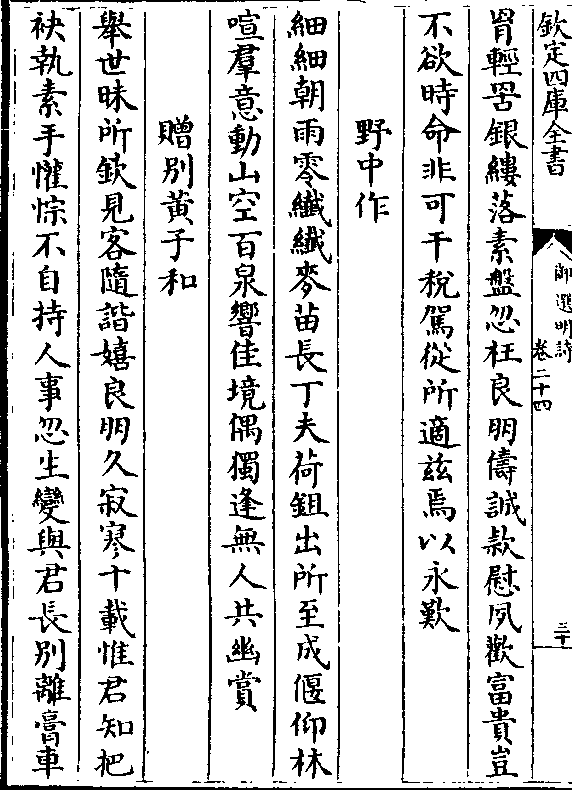 欽定四庫全書
御選明詩
卷二十四
三十
罥輕罟銀縷落素盤忽枉良朋儔誠款慰夙歡富貴豈
不欲時命非可干稅駕從所適茲焉以永歎
野中作
細細朝雨零纖纖麥苗長丁夫荷鉏出所至成偃仰林
喧羣意動山空百泉響佳境偶獨逢無人共幽賞
贈別黃子和
舉世昧所欽見客隨諧嬉良朋久寂寥十載惟君知把
袂執素手懽悰不自持人事忽生變與君長別離膏車